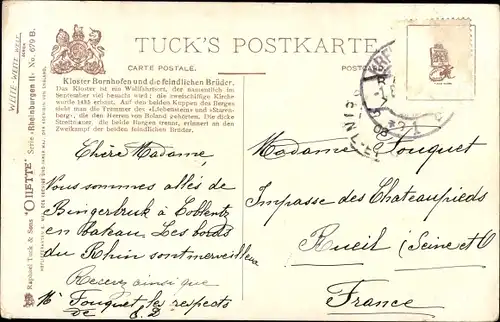 TUCK'S POSTKARTE
CARTE POSTALE.
POSTCARD
Kloster Bornhofen und die feindlichen Brüder.
Das Kloster ist ein Wallfahrtsort, der namentlich im
September viel besucht wird; die zweischiffige Kirche
wurde 1435 erbaut. Auf den beiden Kuppen des Berges
sieht man die Trümmer des «Liebenstein» und «Sterrenberg»,
die den Herren von Boland gehörten. Die dicke
Streitmauer, die beide Burgen trennt, erinnert an den
Zweikampf der beiden feindlichen Brüder.
WEITE-WEITE-WELT
Serie «Rheinburgen II» No. 679 B.
Raphael Tuck & Sons "OILETTE"
08
Chère Madame,
Vous sommes allés de
Bingerbruk à Coblentz
en bateau. Les bords
du Rhin sont merveilleux
Recevez ainsi que
Mr Fouquet les respects
de
Madame Fouquet
Impasse des Chateaupieds
Rueil (Seine et O
France